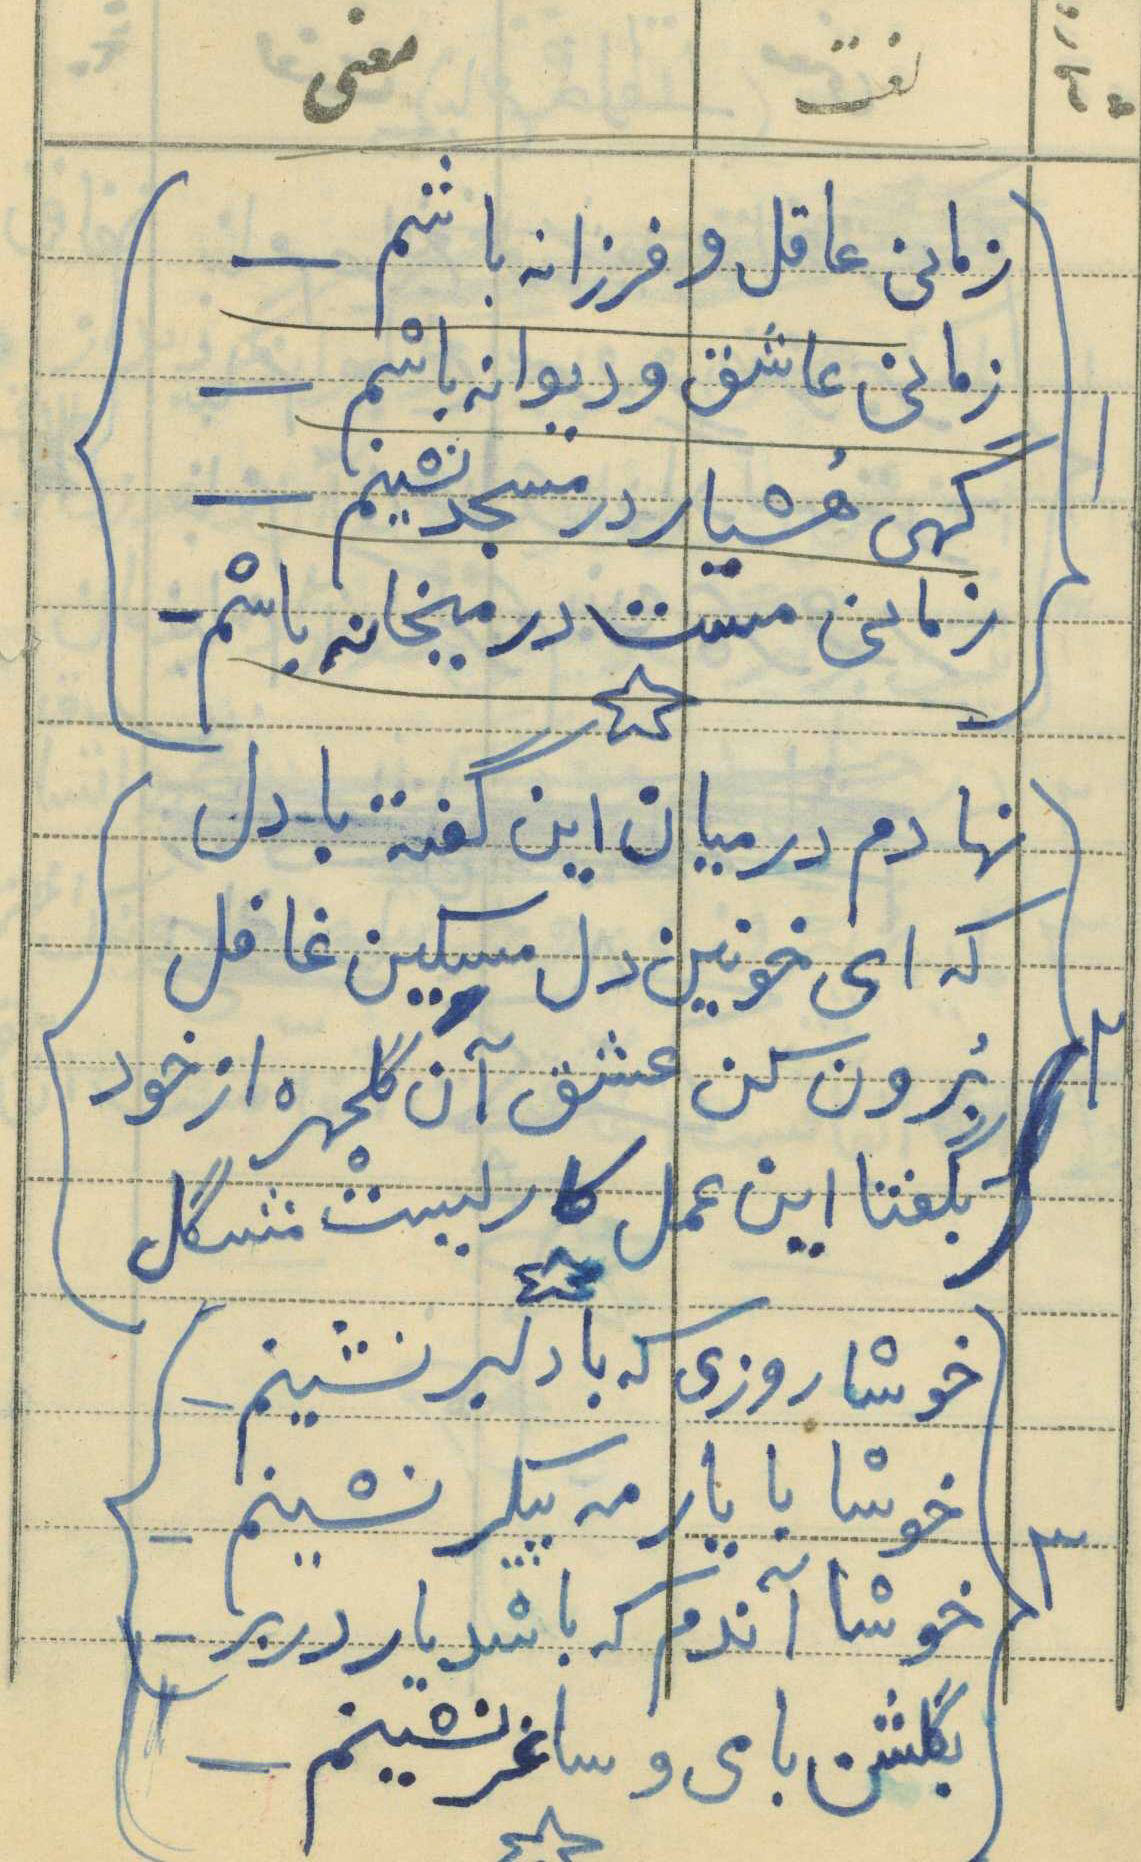 شماره لغت معنی
زمانی عاقل و فرزانه باشم –
زمانی عاشق و دیوانه باشم –
۱
گهی هُشیار در مسجد نشینم –
زمانی مست در میخانه باشم –
نهادم در میان این گفته با دل
که ای خونین دل مسکین غافل
۲
بُرون کن عشق آن گلچهره از خود
بگفتا این عمل کاریستْ مشگل
خوشا روزی که با دلبر نشینم –
خوشا با یار مه پیکر نشینم –
۳
خوشا آندم که باشد یار در بر –
بگلشن با می و ساغر نشینم –